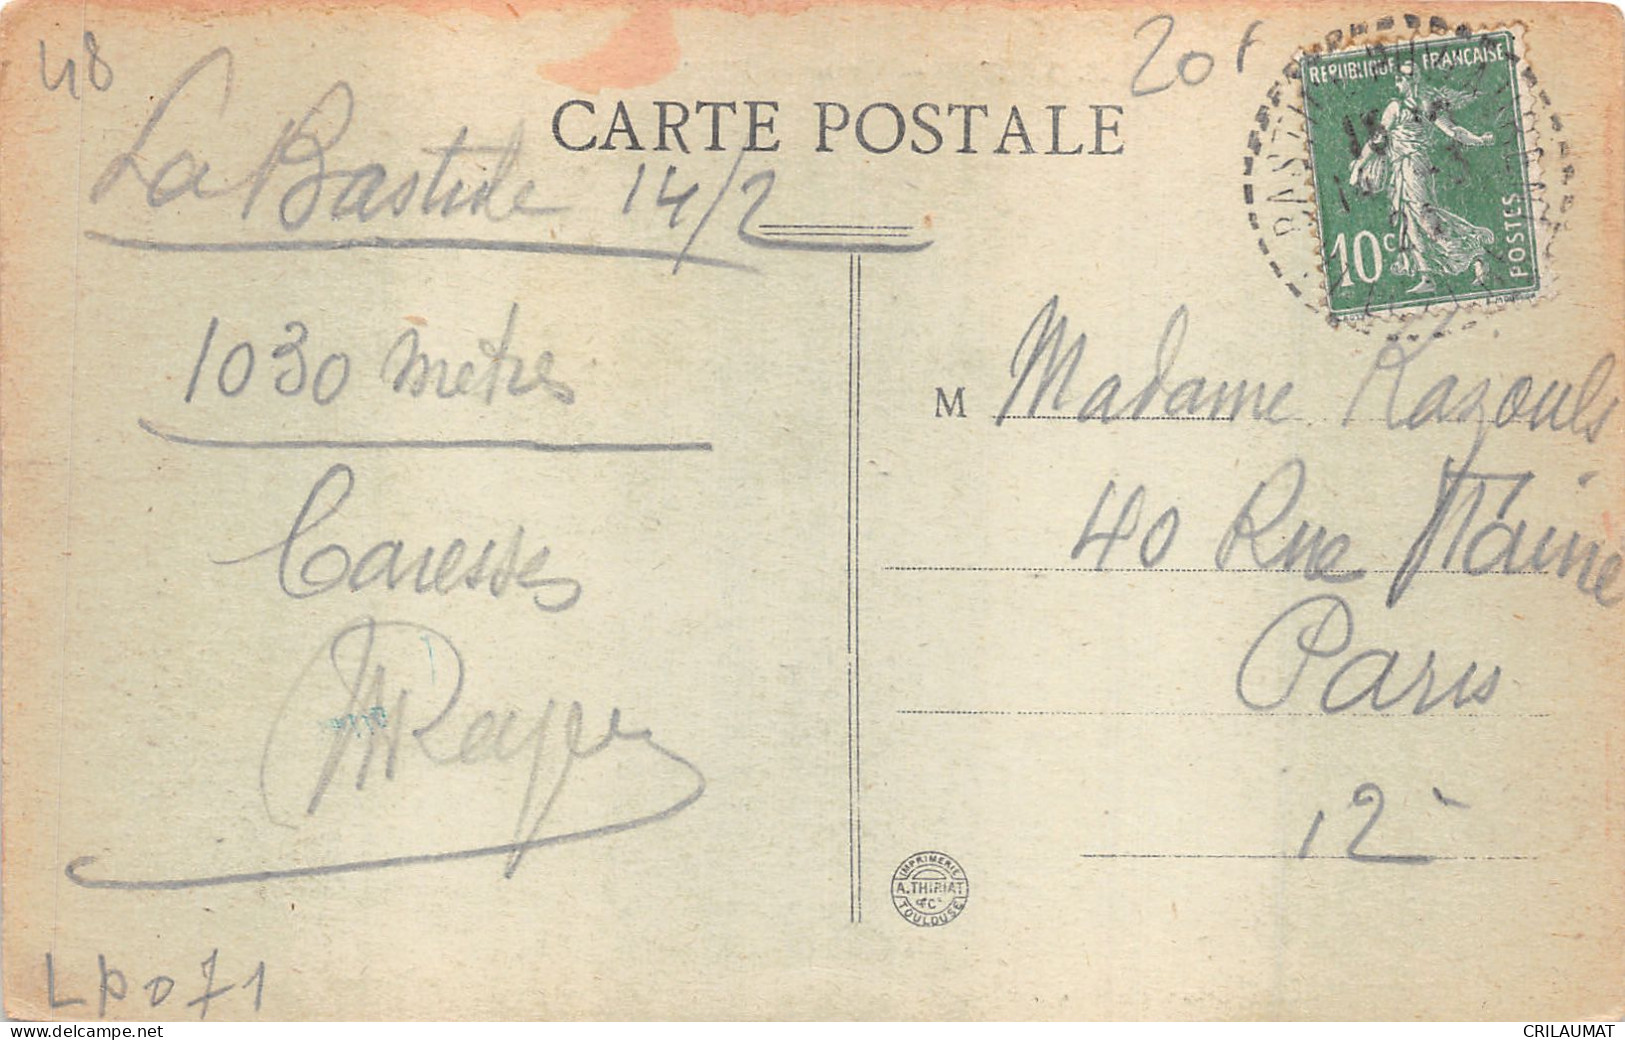 48
20f
CARTE POSTALE
REPUBLIQUE FRANÇAISE
10c
POSTES
La Bastide 14/2
1030 metres
Caresses
M Madame Razouls
40 Rue Taine
Paris
12
IMPRIMERIE
A. THIRIAT
& Cie
TOULOUSE
LP071
CRILAUMAT